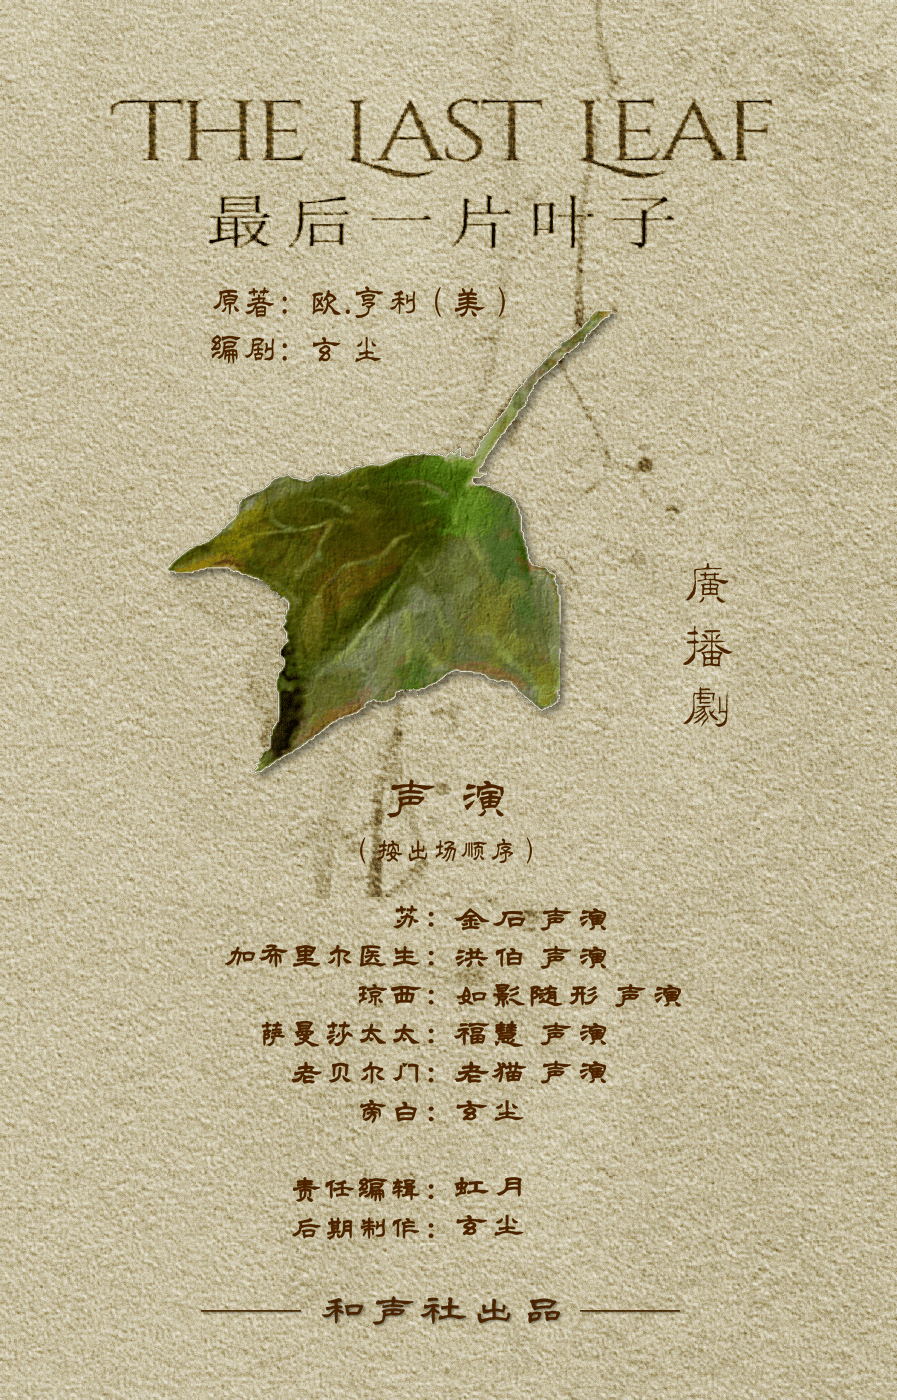 THE LAST LEAF
最后一片叶子
原著：欧.亨利（美）
编剧：玄尘
廣播劇
声演
（按出场顺序）
苏：金石 声演
加希里尔医生：洪伯 声演
琼西：如影随形 声演
萨曼莎太太：福慧 声演
老贝尔门：老猫 声演
旁白：玄尘
责任编辑：虹月
后期制作：玄尘
和声社出品